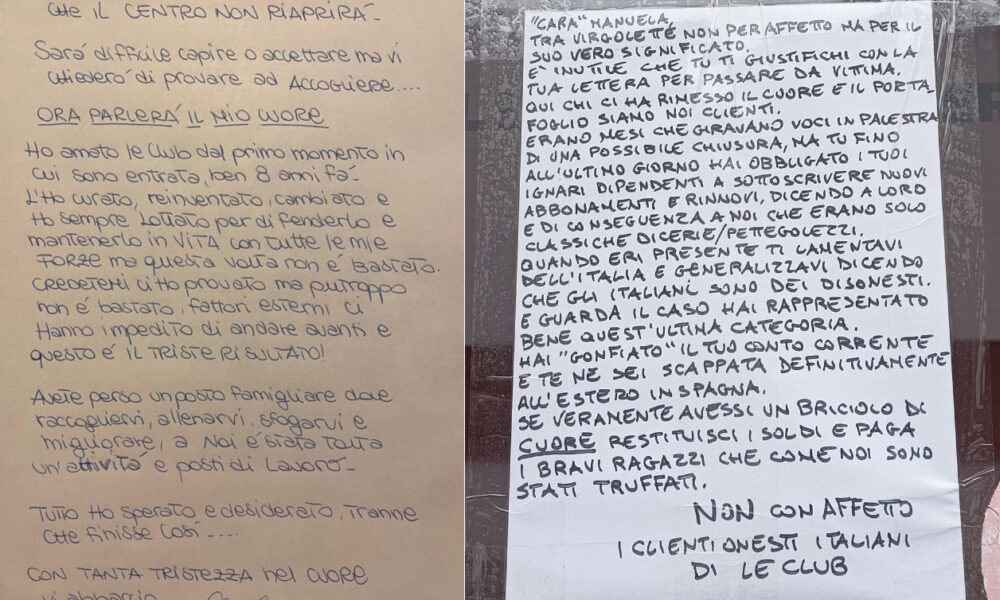 CHE IL CENTRO NON RIAPRIRÀ-
Sarà difficile capire o accettare ma vi
chiederò di provare ad Accogliere....
ORA PARLERÀ IL MIO CUORE
Ho amato le Club dal primo momento in
cui sono entrata, ben 8 anni fà-
L'ho curato, reinventato, cambiato e
ho sempre lottato per difenderlo e
mantenerlo in VITA con tutte le mie
FORZE ma questa volta non é bastato.
CREDETEMI ci ho provato ma purtroppo
non é bastato, fattori esterni ci
Hanno impedito di andare avanti e
questo é IL TRISTE RISULTATO!
Avete perso un posto famigliare dove
raccogliervi, allenarvi, sfogarvi e
migliorare, a Noi é stata tolta
un'attività e posti di Lavoro-
TUTTO Ho sperato e desiderato, tranne
che finisse così....
CON TANTA TRISTEZZA nel cuore
vi abbraccio
"CARA" MANUELA,
TRA VIRGOLETTE NON PER AFFETTO MA PER IL
SUO VERO SIGNIFICATO.
E' INUTILE CHE TU TI GIUSTIFICHI CON LA
TUA LETTERA PER PASSARE DA VITTIMA.
QUI CHI CI HA RIMESSO IL CUORE E IL PORTA
FOGLIO SIAMO NOI CLIENTI.
ERANO MESI CHE GIRAVANO VOCI IN PALESTRA
DI UNA POSSIBILE CHIUSURA, MA TU FINO
ALL'ULTIMO GIORNO HAI OBBLIGATO I TUOI
IGNARI DIPENDENTI A SOTTOSCRIVERE NUOVI
ABBONAMENTI E RINNOVI, DICENDO A LORO
E DI CONSEGUENZA A NOI CHE ERANO SOLO
CLASSICHE DICERIE/PETTEGOLEZZI.
QUANDO ERI PRESENTE TI LAMENTAVI
DELL'ITALIA E GENERALIZZAVI DICENDO
CHE GLI ITALIANI SONO DEI DISONESTI.
E GUARDA IL CASO HAI RAPPRESENTATO
BENE QUEST'ULTIMA CATEGORIA.
HAI "GONFIATO" IL TUO CONTO CORRENTE
E TE NE SEI SCAPPATA DEFINITIVAMENTE
ALL'ESTERO IN SPAGNA.
SE VERAMENTE AVESSI UN BRICIOLO DI
CUORE RESTITUISCI I SOLDI E PAGA
I BRAVI RAGAZZI CHE COME NOI SONO
STATI TRUFFATI.
NON CON AFFETTO
I CLIENTI ONESTI ITALIANI
DI LE CLUB